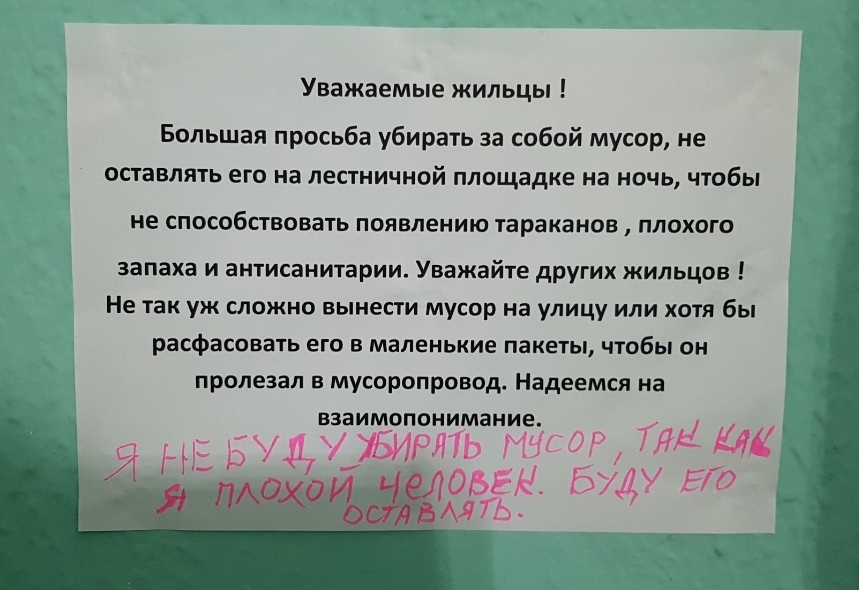 Уважаемые жильцы !
Большая просьба убирать за собой мусор, не
оставлять его на лестничной площадке на ночь, чтобы
не способствовать появлению тараканов , плохого
запаха и антисанитарии. Уважайте других жильцов !
Не так уж сложно вынести мусор на улицу или хотя бы
расфасовать его в маленькие пакеты, чтобы он
пролезал в мусоропровод. Надеемся на
взаимопонимание.
Я НЕ БУДУ УБИРАТЬ МУСОР, ТАК КАК
Я ПЛОХОЙ ЧЕЛОВЕК. БУДУ ЕГО
ОСТАВЛЯТЬ.